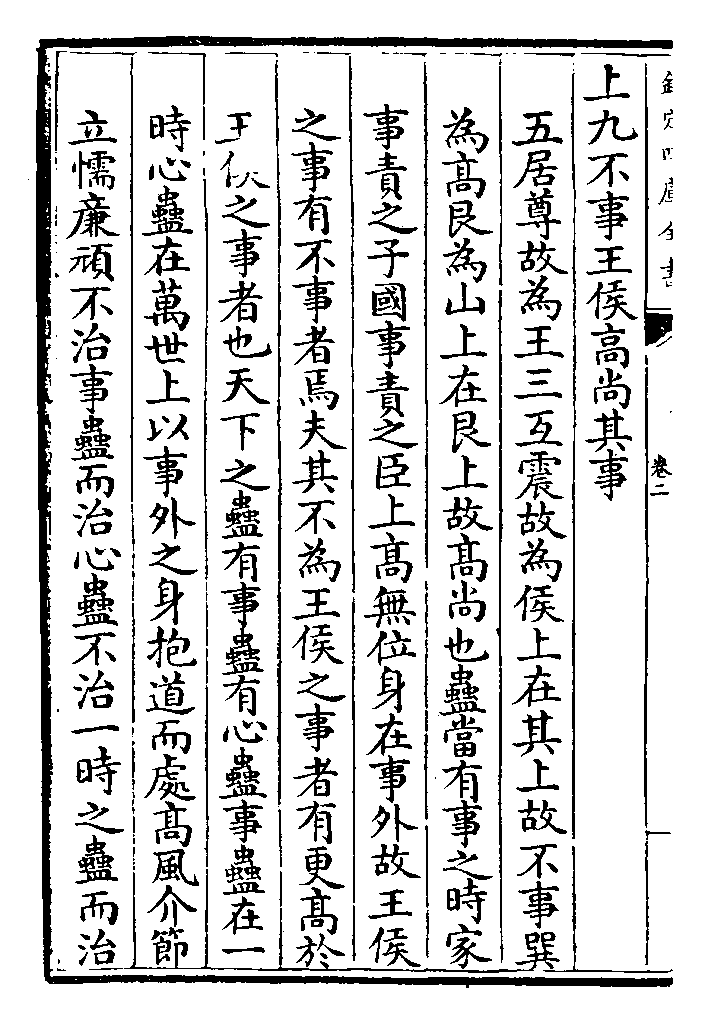 欽定四庫全書
卷二
上九不事王侯高尚其事
五居尊故為王三互震故為侯上在其上故不事巽
為高艮為山上在艮上故高尚也蠱當有事之時家
事責之子國事責之臣上高無位身在事外故王侯
之事有不事者焉夫其不為王侯之事者有更高於
王侯之事者也天下之蠱有事蠱有心蠱事蠱在一
時心蠱在萬世上以事外之身抱道而處高風介節
立懦廉頑不治事蠱而治心蠱不治一時之蠱而治